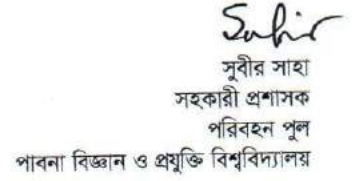 সুবীর সাহা
সহকারী প্রশাসক
পরিবহন পুল
পাবনা বিজ্ঞান ও প্রযুক্তি বিশ্ববিদ্যালয়